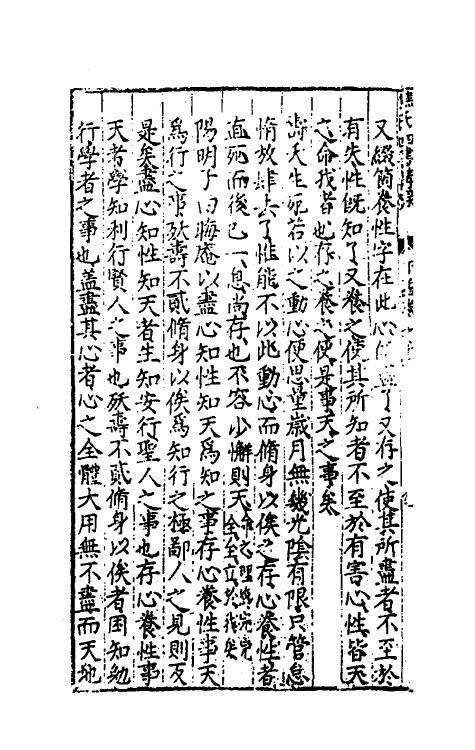 又綴箇養性字在此心既盡了又存之使其所盡者不至於
有失性既知了又養之使其所知者不至於有害心性皆天
之命我者也存之養之便是事天之事矣
壽夭生死若以之動心便思量歲月無幾光陰有限只管怠
惰放肆去了惟能不以此動心而脩身以俟之存心養性者
直死而後已一息尚存也不容少懈則天命之理我完完
全全立於我矣
陽明子曰晦庵以盡心知性知天為知之事存心養性事天
為行之事殀壽不貳脩身以俟為知行之極鄙人之見則反
是矣盡心知性知天者生知安行聖人之事也存心養性事
天者學知利行賢人之事也殀壽不貳脩身以俟者困知勉
行學者之事也蓋盡其心者心之全體大用無不盡而天地